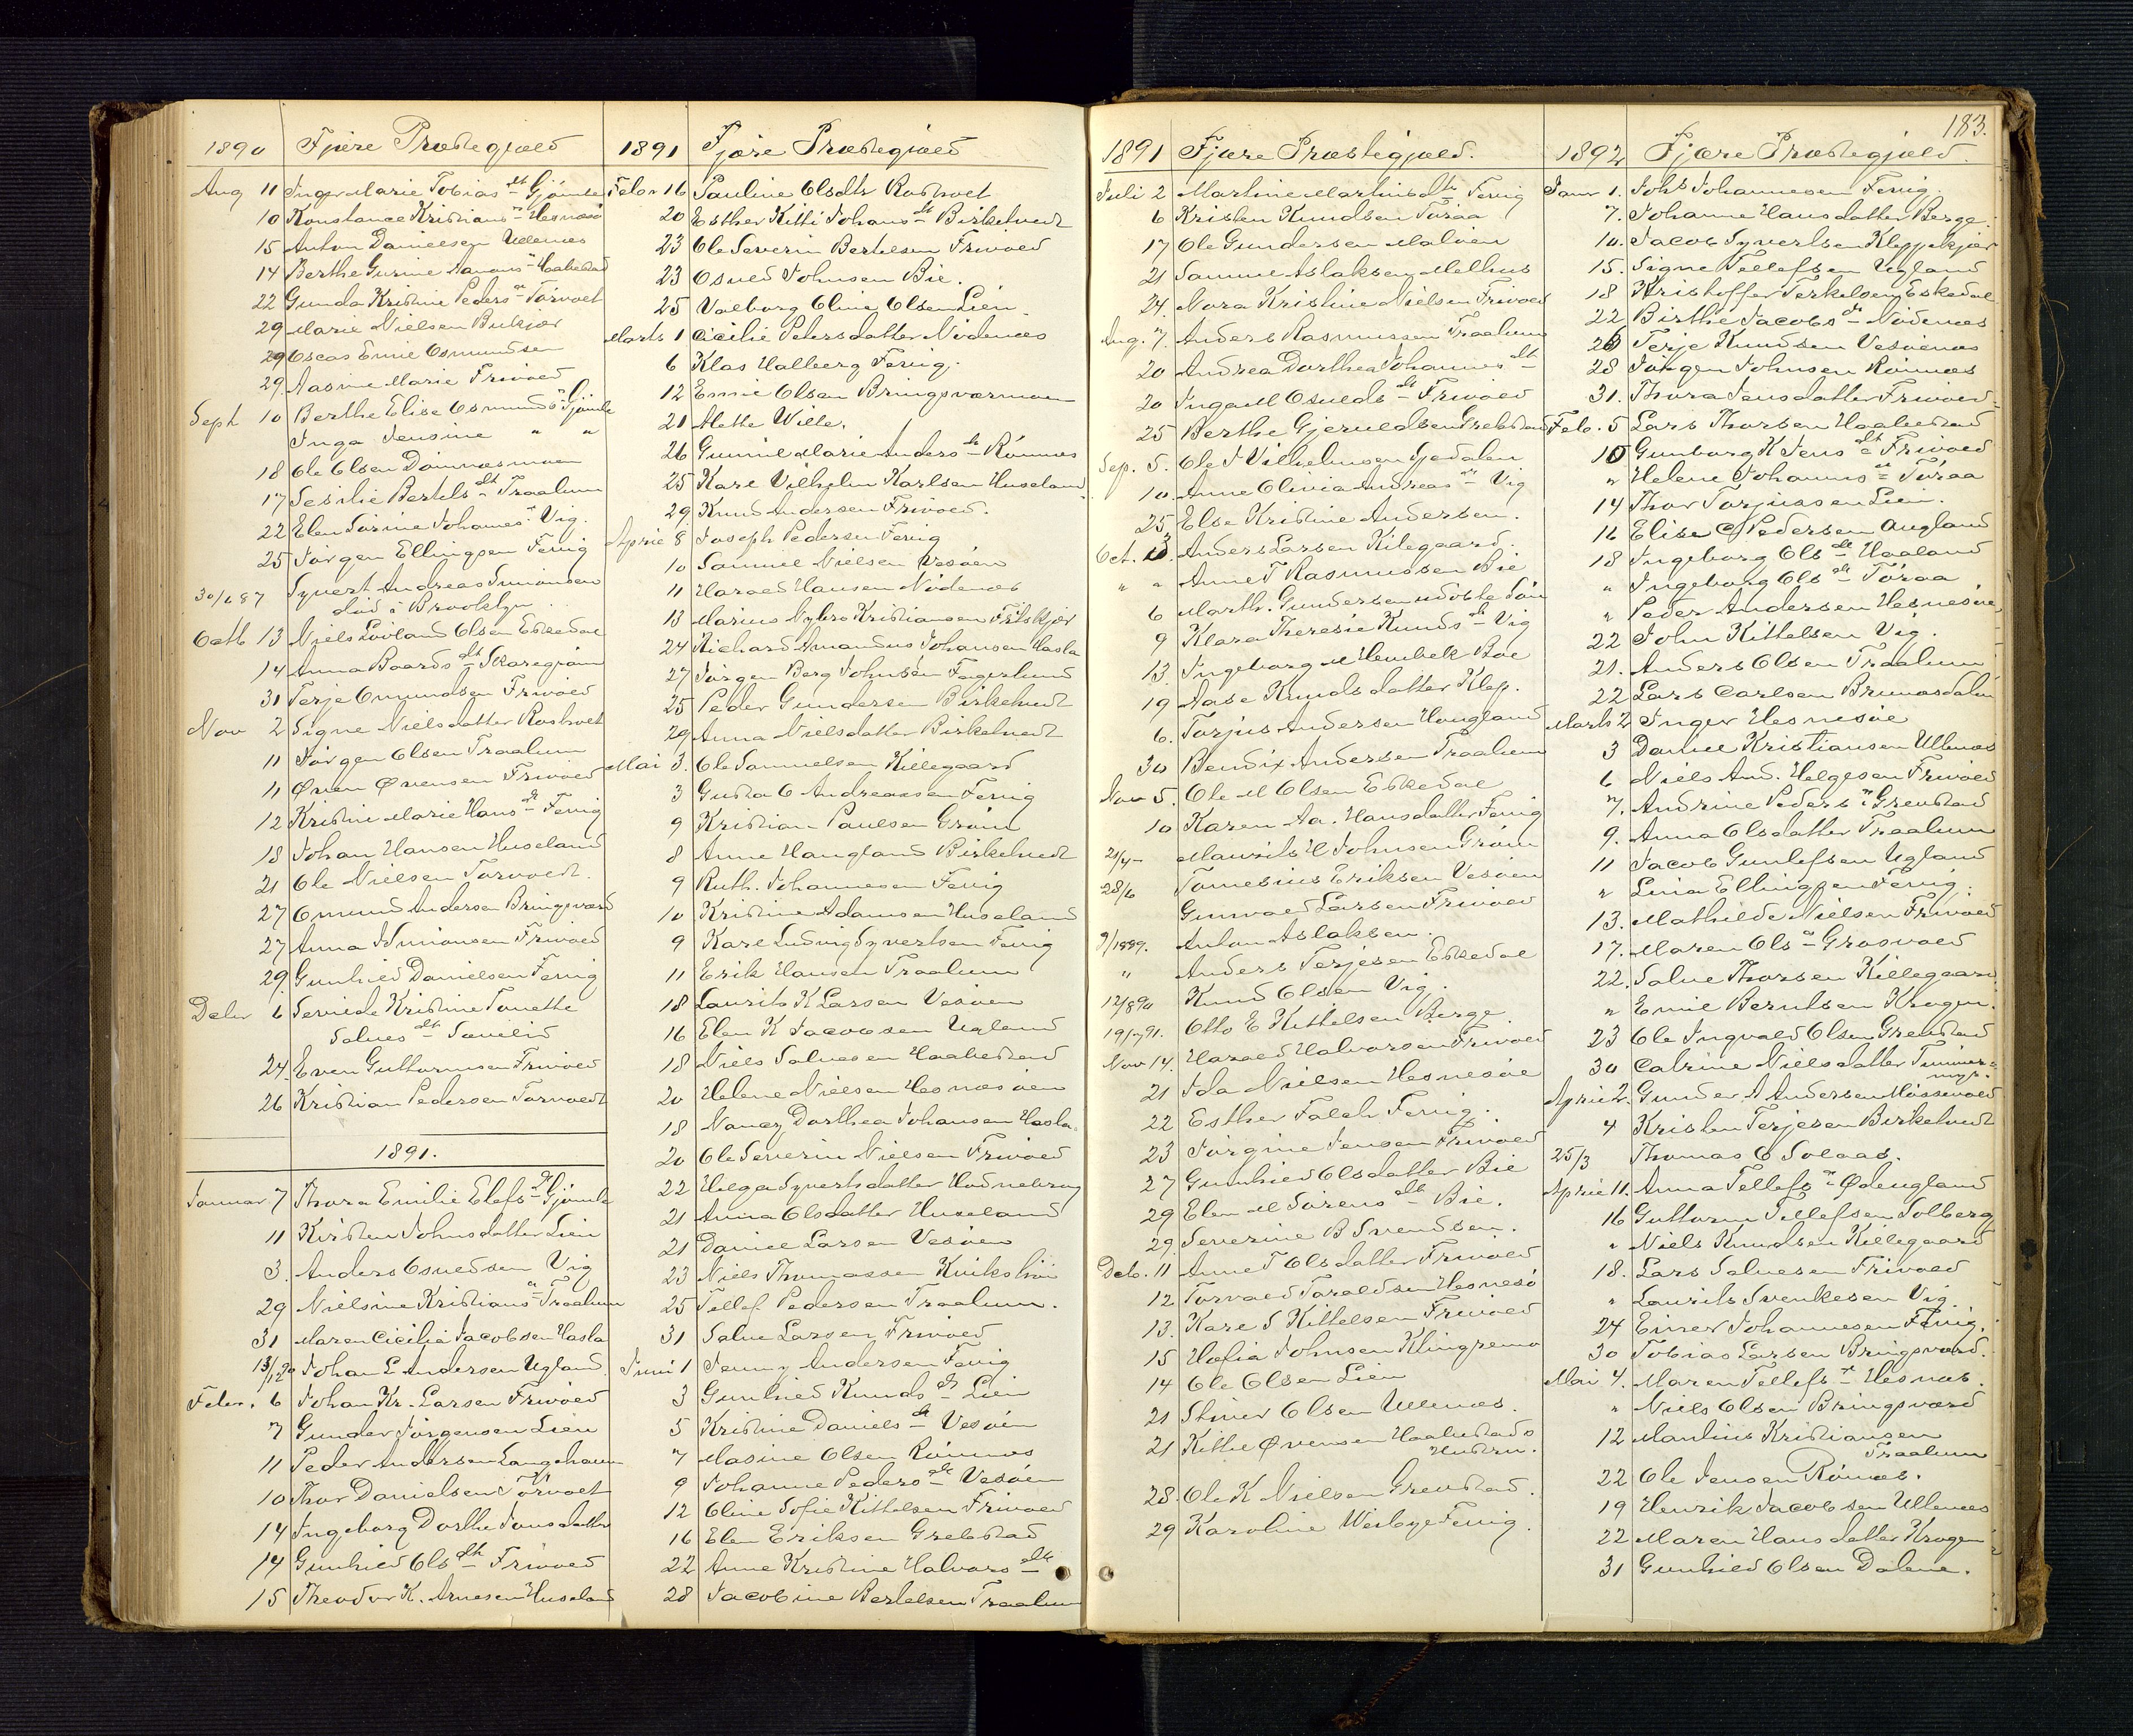 183.
1890 Fjære Præstegjæld
Aug 11 Inger Marie Tobias dt Gjömle
10 Konstance Kristians " Hesnæsö
15 Anton Danielsen Ullenæs
14 Berthe Gurine " Haabestad
22 Gunda Kristine Peders " Törvolt
29 Marie Nielsen Bukjær
29 Oscar Emil Osmundsen
29. Aasine Marie Frivold
Sept 10 Berthe Elise Osmunds " Gjömle
Inga Jensine " "
18 Ole Olsen Dömnesmoen
17 Sesilie Bertels dt Traalum
22 Elen Sörine Johannes " Vig.
25 Jörgen Ellingsen Fevig
30/6 87 Syvert Andreas Simonsen
död i Brooklyn
Octb 13 Niels Lövland Olsen Eskedal
14 Anna Baards dt Skaregröm
31 Terje Omundsen Frivold
Nov 2 Signe Nielsdatter Rosholt
11 Jörgen Olsen Traalum
11 Øven Øvensen Frivold
12 Kristine Marie Hans dt Fevig
18 Johan Hansen Huseland
21 Ole Nielsen Törvolt.
27 Omund Andersen Bringsværd
27 Anna S Simonsen Frivold
29. Gunhild Danielsen Fevig
Debr 6 Sevilde Kristine Tonette
Salves dt Sævelid
24. Even Guttormsen Frivold
26 Kristian Pedersen Törvoldt
1891.
Januar 7 Thora Emilie Elefs dt Gjömle
11 Kirsten Johnsdatter Lien
3. Anders Osuldsen Vig
29 Nielsine Kristians " Traalum
31 Maren Cicilie Jacobsen Hasla
13/12 90 Johan L Andersen Ugland
Febr. 6 Johan Kr. Larsen Frivold
7 Gunder Jörgensen Lien
11 Peder Andersen Langehaven
10 Thor Danielsen Törvolt
14 Ingeborg Dorthe Jonsdatter
14 Gunhild Ols dtt Frivold
15 Theodor K. Arnesen Huseland
1891 Fjære Præstegjæld
Febr 16 Pauline Olsdtr Rosholt
20 Esther Kitti Johans dt Birkelundt
23 Ole Severin Bertelsen Frivold
23 Osuld Johnsen Bie.
25 Valborg Oline Olsen Lien
Marts 1 Cicilie Petersdatter Nödenæs
6 Klas Halberg Fevig.
12 Emil Olsen Bringsværmoen
21 Mette Wille.
26 Gunnil Marie Anders dt Rönnes
25 Karl Vilhelm Karlsen Huseland
29 Knud Andersen Frivold.
April 8 Joseph Pedersen Fevig
10 Samuel Nielsen Vesöen
11 Harald Hansen Nödenæs
13 Marius Nybro Kristiansen Fölskjær
24 Richard Amandus Johansen Hasla
27 Jörgen Berg Johnsen Fagerlund
25 Peder Gundersen Birkelundt
29 Anna Nielsdatter Birkelundt
Mai 3. Ole Samuelsen Killegaard
3 Gusta O Andreassen Fevig
9 Kristian Paulsen Gröm
8 Anne Haugland Birkelundt
9 Ruth. Johannesen Fevig
10 Kristine Adamsen Huseland
9 Karl Ludvig Syvertsen Fevig
11 Erik Hansen Traalum
18 Laurits K Larsen Vesöen
16 Elen K Jacobsen Uglund
18 Niels Salvesen Haabestad
20 Helene Nielsen Hesnæsöen
18 Nancy Dorthea Johansen Hasla
20 Ole Severin Nielsen Frivold
22 Helga Syvertsdatter Hodnebrog
21 Anna Olsdatter Huseland
21 Daniel Larsen Vesöen
23 Niels Thomassen Kvikshöi
25 Tellef Pedersen Traalum.
31 Salve Larsen Frivold
Juni 1 Jenny Andersen Fevig
3 Gunhild Knuds dt Lien
5 Kristine Daniels dt Vesöen
7 Masine Olsen Rönnes
9 Johanne Peders dt Vesöen
12 Oline Sofie Kittelsen Frivold
16 Elen Eriksen Grebstad
22 Anne Kristine Halvors dt
28 Jacobine Bertelsen Traalum
1891 Fjære Præstegjæld.
Juli 2 Martine Martins dt Fevig
6 Kristen Knudsen Töraa
17 Ole Gundersen Malöen
21 Samuel Aslaksen Melhus
24. Nora Kristine Nielsen Frivold
Aug. 7. Anders Rasmussen Traalum
20 Andrea Dorthea Johannes dt
20 Inga M Osulds dt Frivold
25 Berthe Gjeruldsen Grebstad
Sep. 5. Ole J Vilhelmsen Gjædalen
10. Anne Olivia Andreas " Vig
25 Else Kristine Andersen.
Oct. Anders Larsen Kilegaard.
" " Anne T Rasmussen Bie
6 Marth. Gundersen
9 Klara Theresie Knuds dt Vig
13. Ingeborg M Hembek Boe
19 Aase Knudsdatter Klep.
6. Torjus Andersen Haugland
30 Bendix Andersen Traalum
Nov 5. Ole M Olsen Eskedal
10 Karen Aa. Hansdatter Fevig
21/4 Maurits H Johnsen Gröm
28/6 Tomesius Eriksen Vesöen
Gunvald Larsen Frivold
9/1889. Anton Aslaksen.
" Anders Terjesen Eskedal
12/8 90 Knud Olsen Vig.
19/7 91. Otto E Kittelsen Berge
Nov 14. Harald Halvorsen Frivold
21 Ida Nielsen Hesnesöe
22 Esther Falch Fevig.
23 Jörgine Jensen Frivold
27 Gunhild Olsdatter Bie
29 Elen M Sörens dtt Bie.
29. Severine B Svendsen.
Deb. 11 Anne T Olsdatter Frivold
12 Torvald Taraldsen Hesnesö
13. Karl S Kittelsen Frivold
15 Hæfia Johnsen Klingremo
14 Ole Olsen Lien
21 Stiner Olsen Ullenæs.
21 Kitte Øvensen Haabestads
Hustru.
28. Ole K Nielsen Grevstad.
29 Karoline Weibye Fevig.
1892 Fjære Præstegjæld.
Janr 1. Johs Johannesen Fevig.
7. Johanne Hansdatter Berge.
10. Jacob Syvertsen Kleppekjær
15. Signe Tellefsen Ugland
18 Kristoffer Terkelsen Eskedal
22 Birthe Jacobs dt Nödenæs
26 Terje Knudsen Vesöenæs
28 Jörgen Johnsen Rönnæs
31. Thora Jensdatter Frivold.
Feb. 5 Lars Thorsen Haabestad
10 Gunborg K Jens dt Frivold
" Helene Johanns " Töraa
14 Thor Torjussen Lien.
16 Elise C Pedersen Augland
18 Ingeborg Ols dt Haaland
" Ingeborg Ols dt Töraa
" Peder Andersen Hesnesöe
22 John Kittelsen Vig.
21. Anders Olsen Traalum
22 Lars Carlsen Brunæsdalen
Marts 2 Inger Hesnesöe
3 Daniel Kristiansen Ullenæs
6 Niels And. Helgesen Frivold
7. Andrine Peders " Grevstad
9. Anna Olsdatter Traalum
11 Jacob Gunlefsen Ugland
" Lina Ellingsen Fevig.
13. Mathilde Nielsen Frivold
17. Maren Ols " Grosvold
22. Salve Thorsen Killegaard
" Emil Berntsen Krogen.
23 Ole Ingvald Olsen Grevstad
30 Catrine Nielsdatter Tømmer=
myr.
April 2. Gunder A Andersen Mössevold
4 Kristen Terjesen Birkelundt
25/3 Thomas O Solaas.
April 11. Anna Tellefs " Ødengland
16 Guttorm Tellefsen Solberg
" Niels Knudsen Killegaard
18. Lars Salvesen Frivold
" Laurits Svenkesen Vig
24 Einer Johannesen Fevig.
30 Tobias Larsen Bringsværd.
Mai 4. Maren Tellefs " Hesnæs.
" Niels Olsen Bringsværd
12 Mantius Kristiansen
Traalum
22 Ole Jensen Römæs.
19 Henrik Jacobsen Ullenæs
22 Maren Hansdatter Krogen
31 Gunhild Olsen Dalene.